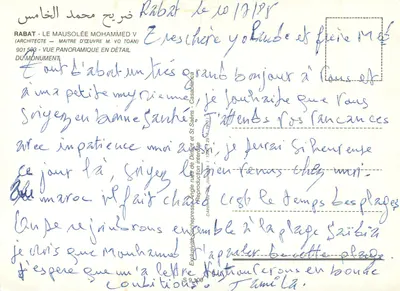 ضريح محمد الخامس
RABAT - LE MAUSOLÉE MOHAMMED V
(ARCHITECTE — MAITRE D'ŒUVRE M. VO TOAN)
901.500 - VUE PANORAMIQUE EN DÉTAIL
DU MONUMENT
Rabat le 10/7/85
Tres chere yolande et frere
Tout d'abort un tres grand bonjour a vous et
a ma petite myrienne, je souhaite que vous
soiyez en bonne santé. J'attends vos vacances
avec impatience moi aussi, je serai si heureuse
ce jour là, soiyez le bien venus chez moi.
Au maroc il fait chaud c'est le temps des plages
on se rejoindrons ensemble a la plage
je crois que Mouhamed
J'espere que m'a lettre vous
conditions. Jamila